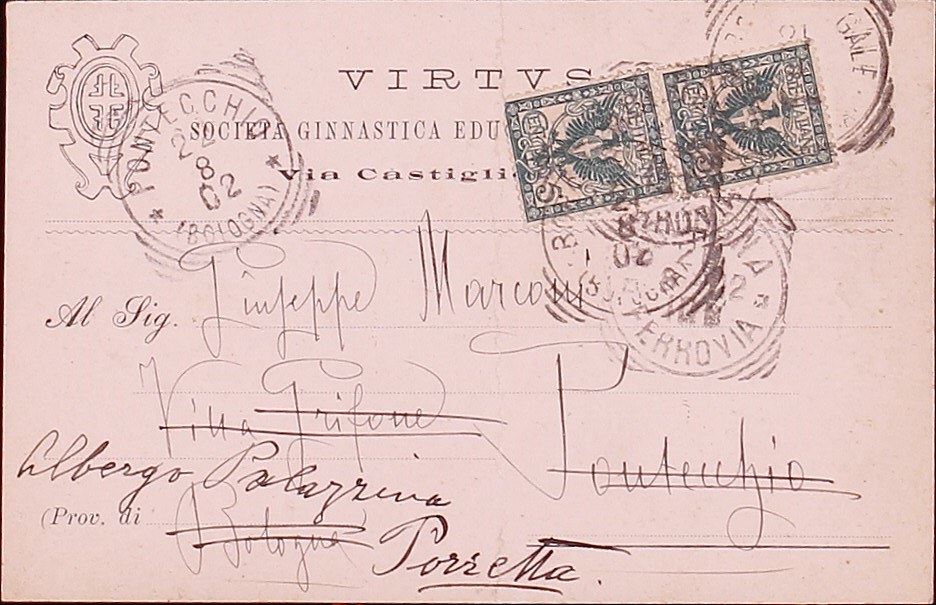 VIRTVS
SOCIETÀ GINNASTICA EDU
Via Castigli
PONTECCHIO
22
8
02
(BOLOGNA)
POSTE ITALIANE
CENT. 5
POSTE ITALIANE
CENT. 5
FERROVIA
Al Sig. Giuseppe Marconi
Villa Grifone
Pontecchio
Albergo Palazzina
(Prov. di Bologna
Porretta.